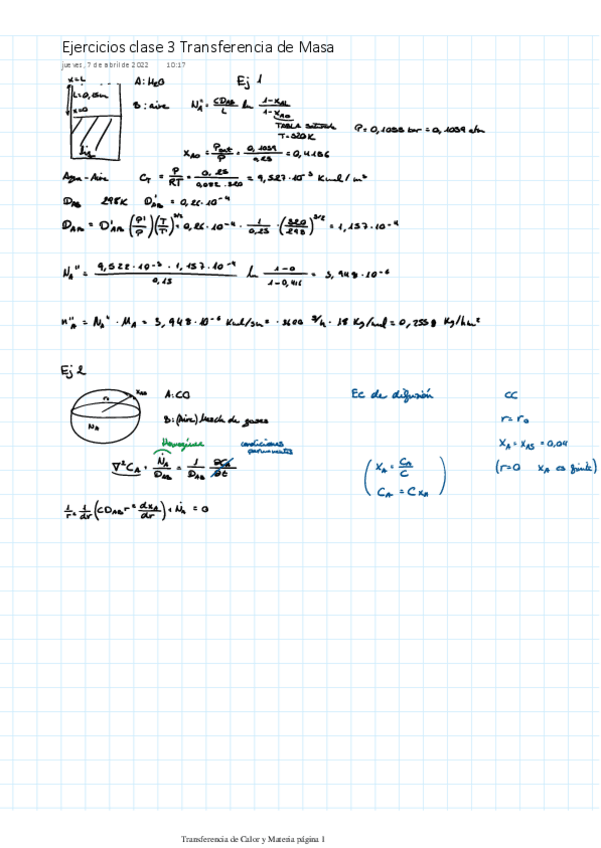 Ejercicios clase 3 Transferencia de Masa
jueves, 7 de abril de 2022 10:17
x=L A: H₂O Ej 1
x=0 B: aire N''A = CDAB/L ln (1-xAL)/(1-xA0)
TABLA saturada P = 0,1053 bar = 0,1039 atm
T=320K
xA0 = Psat/P = 0,1039/0,25 = 0,4156
Agua-Aire CT = P/RT = 0,25/(0,082·320) = 9,527·10⁻³ Kmol/m³
DAB 298K D'AB = 0,26·10⁻⁴
DAB = D'AB (P'/P)(T/T')^3/2 = 0,26·10⁻⁴ · 1/0,25 · (320/298)^3/2 = 1,157·10⁻⁴
NA'' = (9,522·10⁻³ · 1,157·10⁻⁴)/0,15 ln (1-0)/(1-0,416) = 3,948·10⁻⁶
n''A = NA'' · MA = 3,948·10⁻⁶ Kmol/sm² · 3600 s/h · 18 Kg/Kmol = 0,2558 Kg/hm²
Ej 2
r₀ xAS A: CO Ec de difusión CC
NA B: (Aire) mezcla de gases r = r₀
Homogénea condiciones permanentes xA = xAS = 0,04
∇²CA + ṄA/DAB = 1/DAB ∂CA/∂t (xA = CA/C (r=0 xA es finito)
CA = C xA)
1/r² d/dr (CDAB r² dxA/dr) + ṄA = 0
Transferencia de Calor y Materia página 1